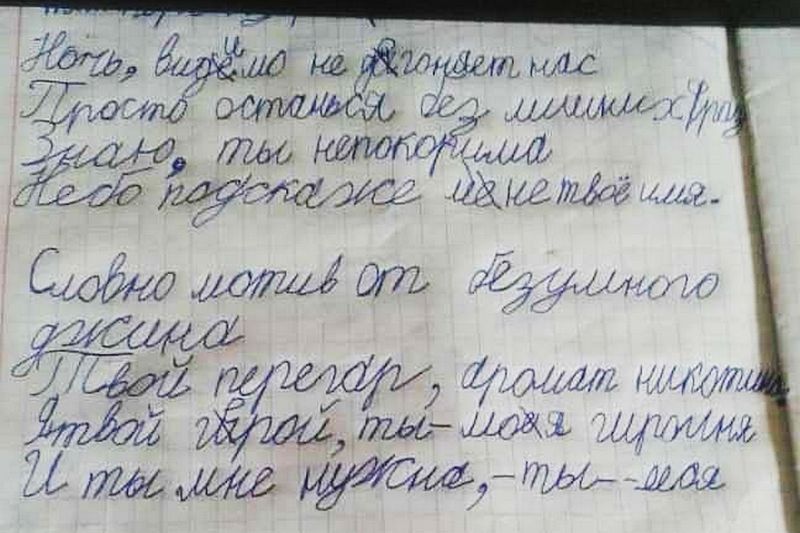 Ночь, видимо не догоняет нас
Просто останься без лишних фраз
Знаю, ты непокорима
Небо подскаже мне твоё имя.
Словно мотив от безумного
джина
Твой перегар, аромат никотина
Я твой герой, ты - моя гироиня
И ты мне нужна, - ты - моя